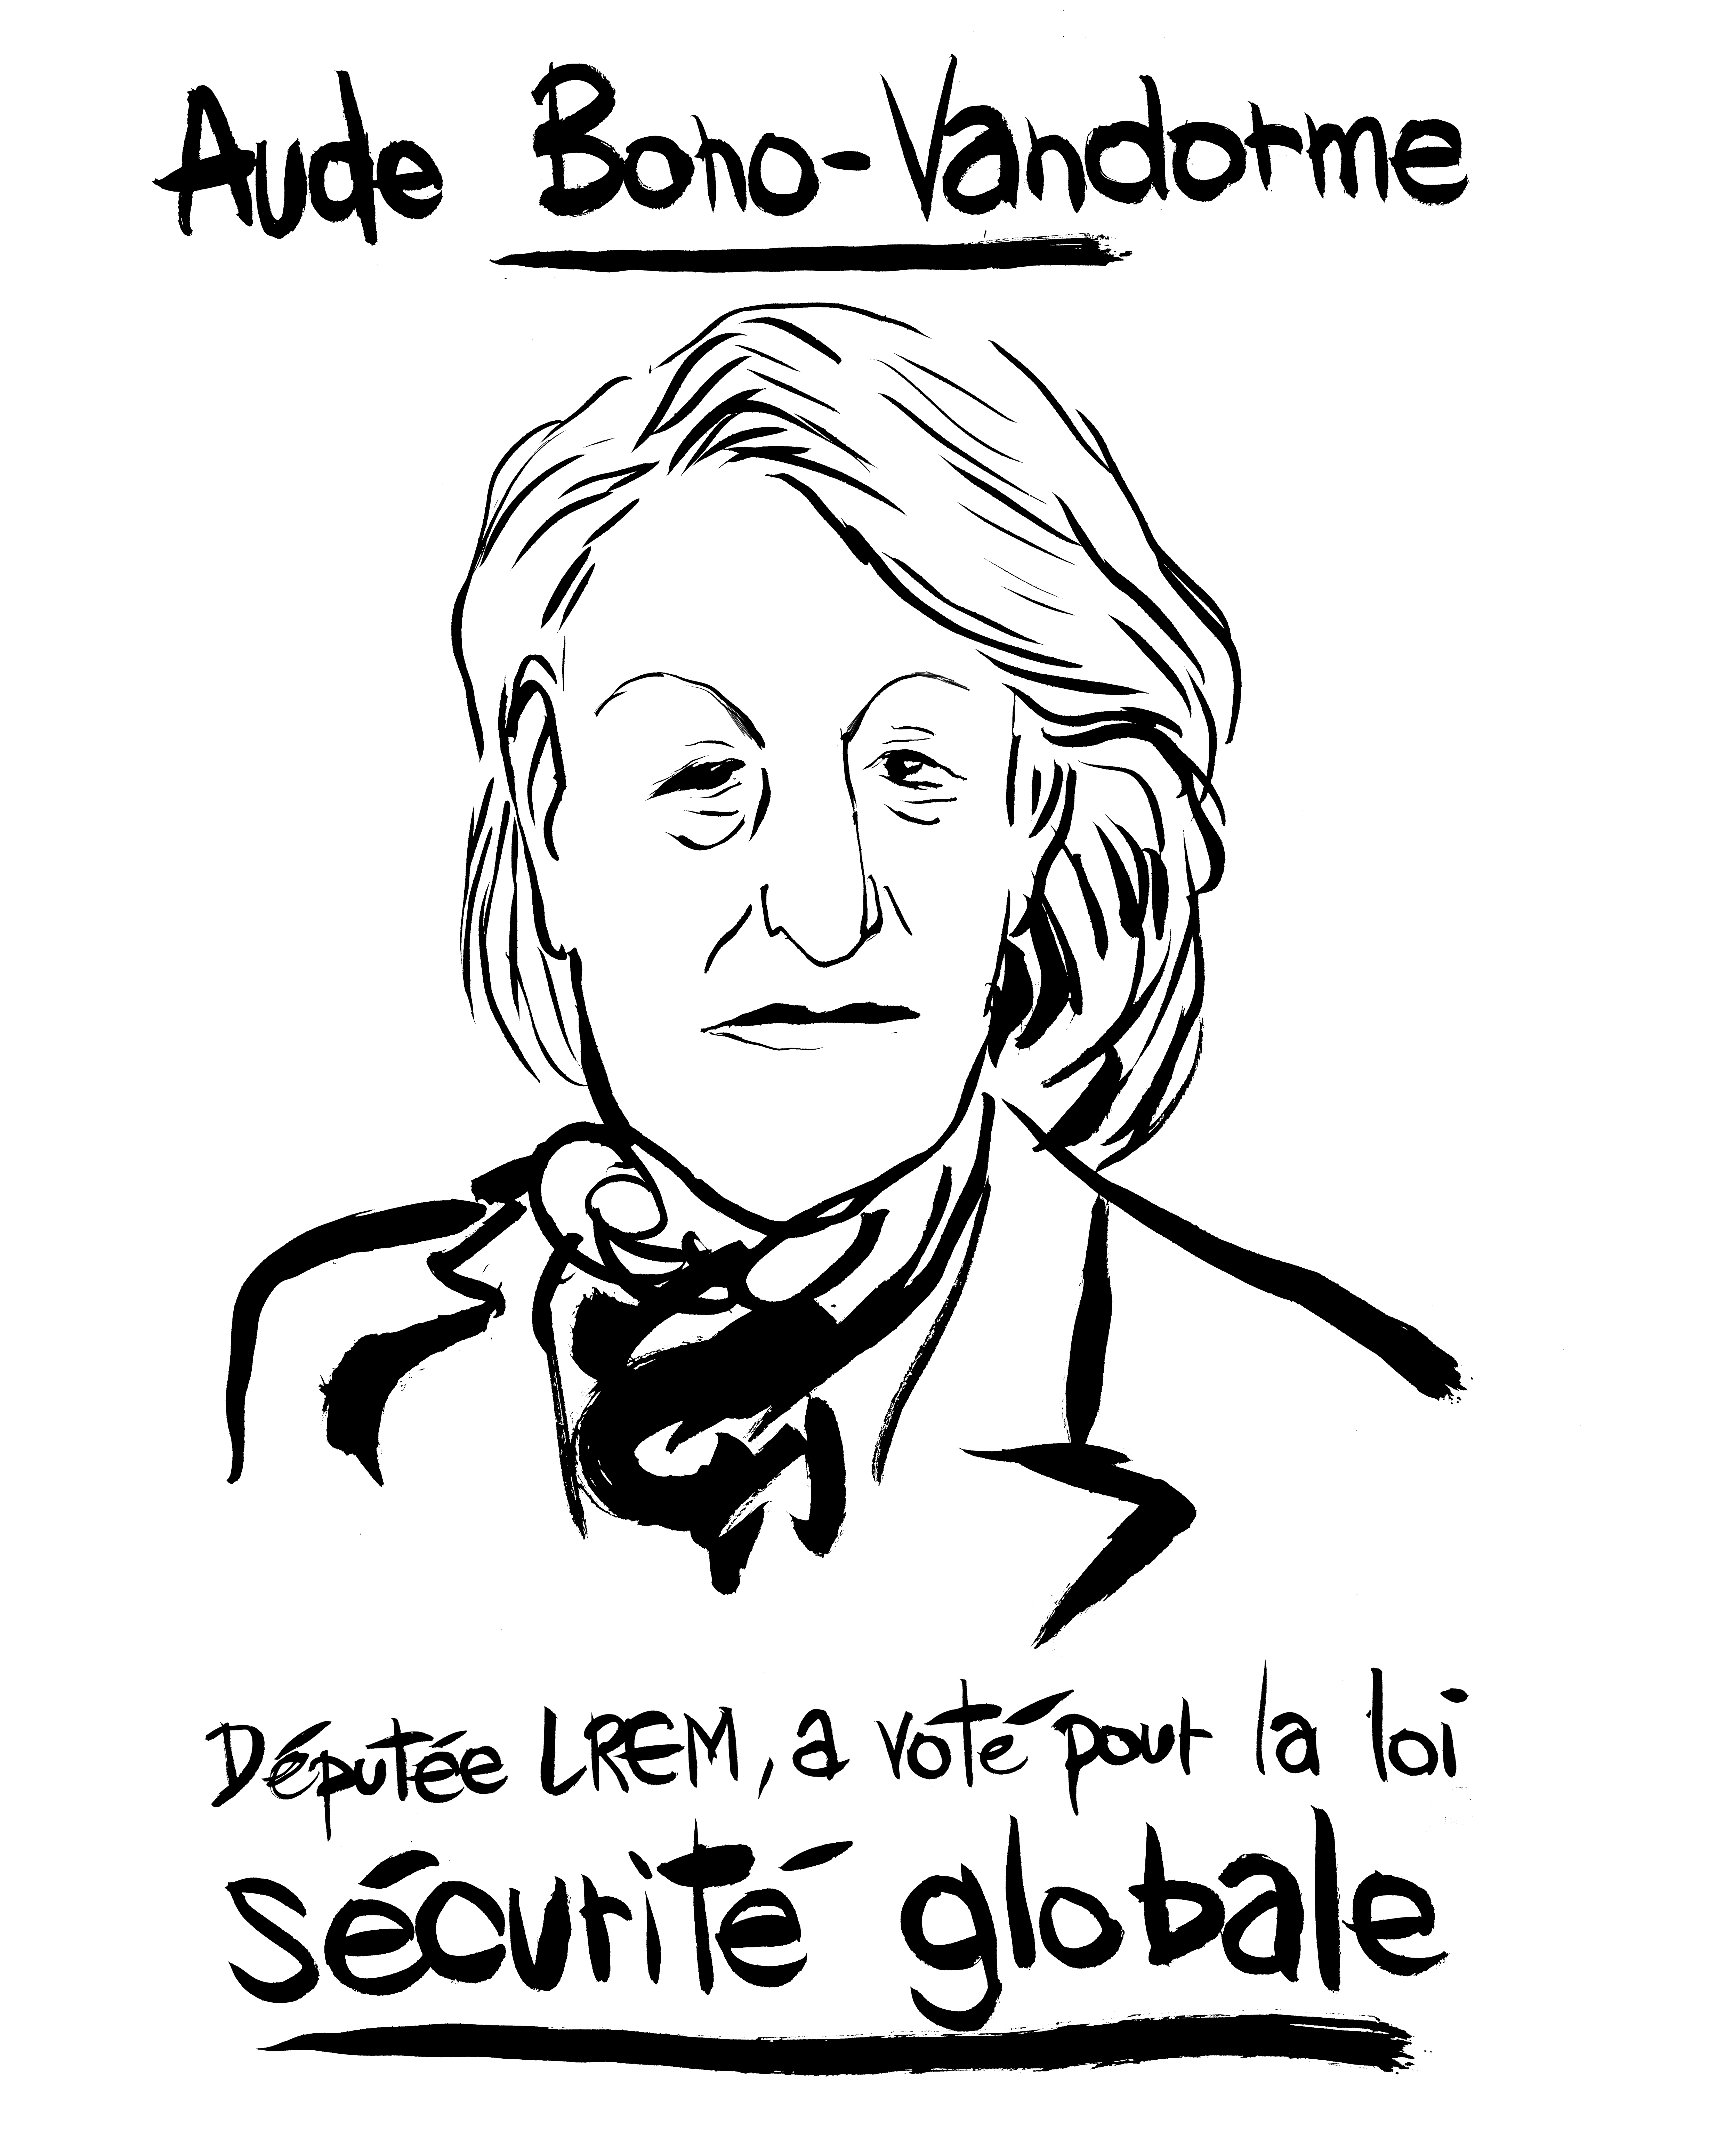 Aude Bono-Vandorme
Députée LREM, a voté pour la loi
sécurité globale